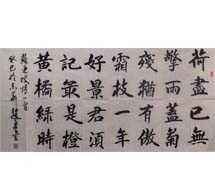 荷盡已無
擎雨蓋菊
殘猶有傲
霜枝一年
好景君須
記最是橙
黄橘綠時
蘇東坡詩一首
癸巳